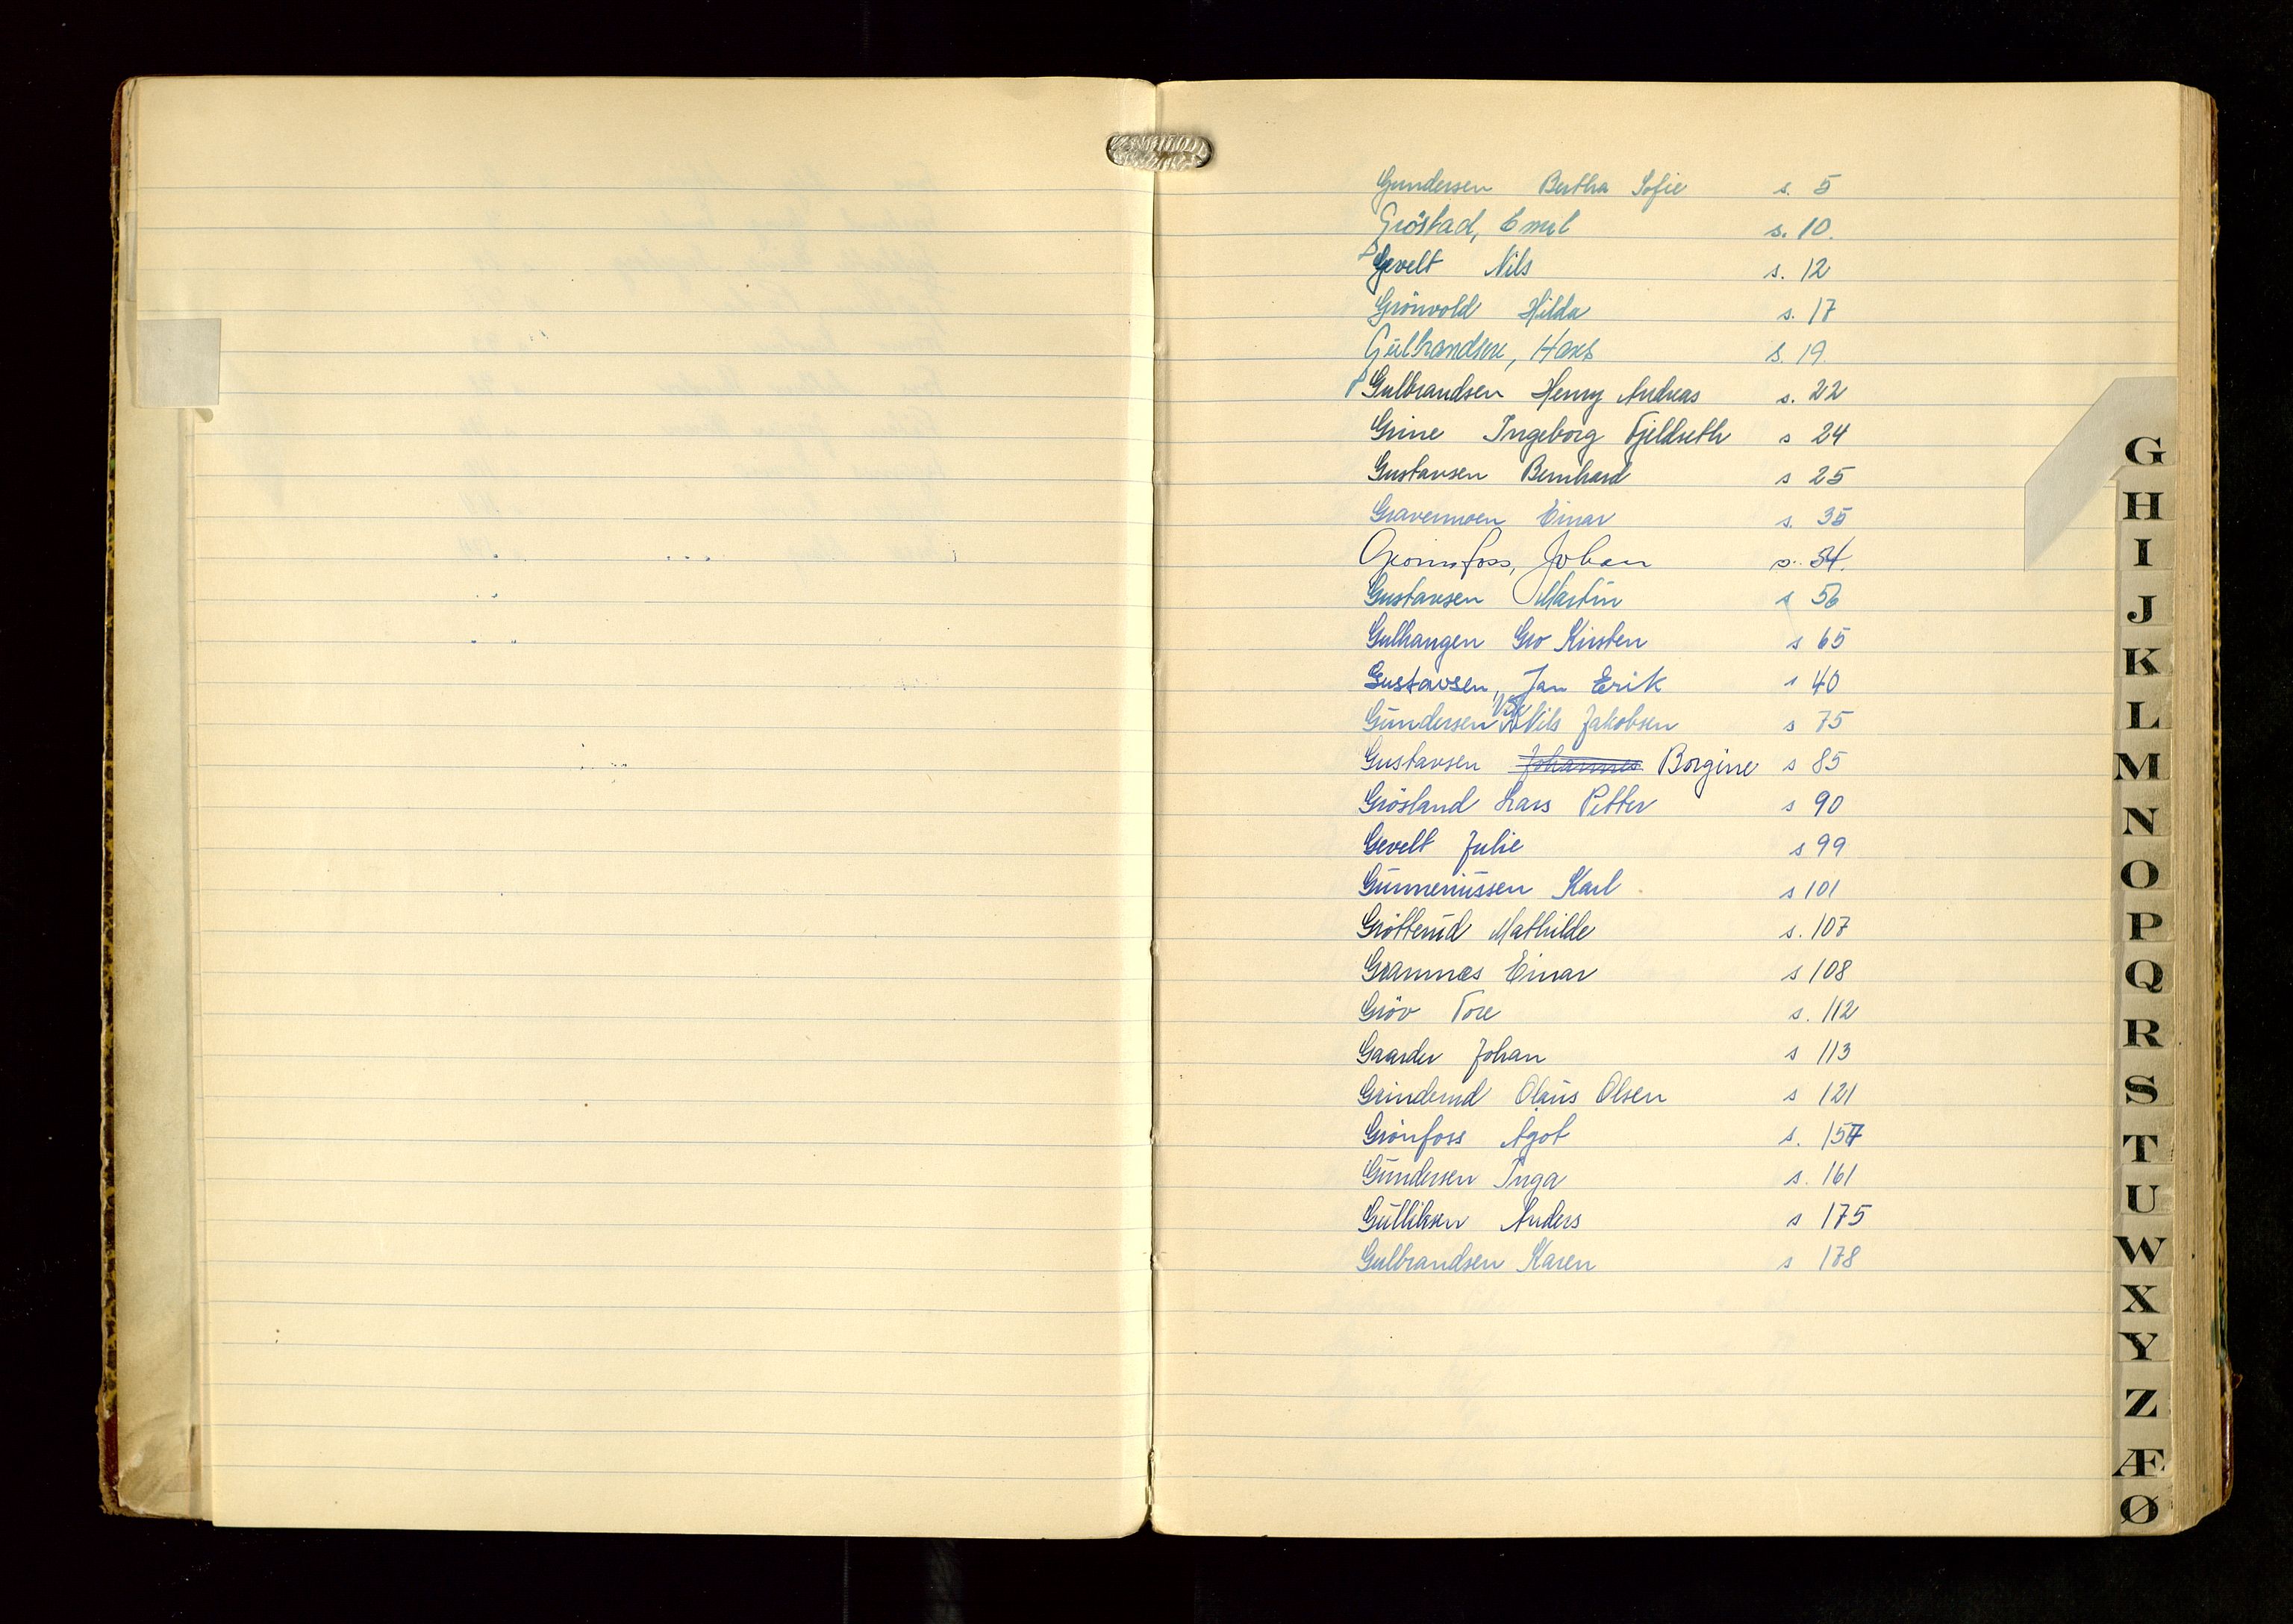 Gundersen Bertha Sofie s. 5
Gröstad, Emil s. 10.
Gevelt Nils s. 12
Grönvold Hilda s. 17
Gulbrandsen, Hans s. 19.
Gulbrandsen Henry Andreas s. 22
Grine Ingeborg Fjeldseth s 24
Gustavsen Bernhard s 25
Gravermoen Einar s. 35
Johan s. 34.
Gustavsen Martin s 56
Gulhaugen Gro Kirsten s 65
Gustavsen, Jan Erik s 40
Gundersen Nils Jakobsen s 75
Gustavsen Johannes Borgine s 85
Grösland Lars Petter s 90
Gevelt Julie s 99
Gunneriussen Karl s 101
Grötterud Mathilde s. 107
Gramnæs Einar s 108
Gröv Tore s. 112
Gaarder Johan s 113
Grinderud Olaus Olsen s 121
Grönfoss Agot s. 157
Gundersen Inga s. 161
Gulliksen Anders s 175
Gulbrandsen Karen s 178
G
H
I
J
K
L
M
N
O
P
Q
R
S
T
U
W
X
Y
Z
Æ
Ø